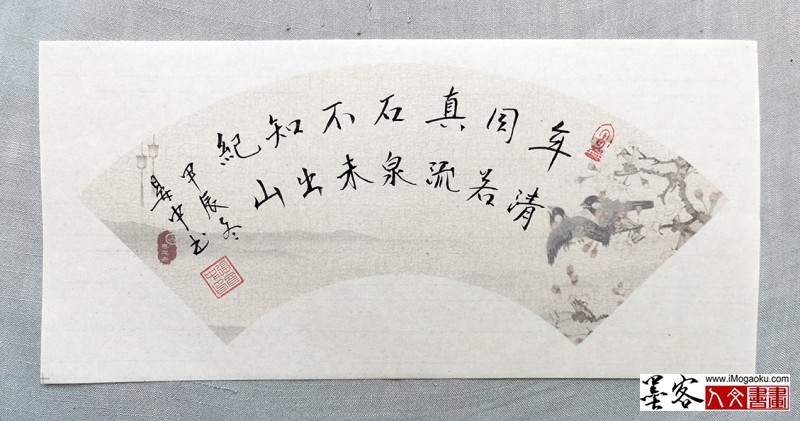 年同真石不知紀
清若流泉未出山
甲辰冬
中书
墨客
www.iMogaoku.com
人文書畫